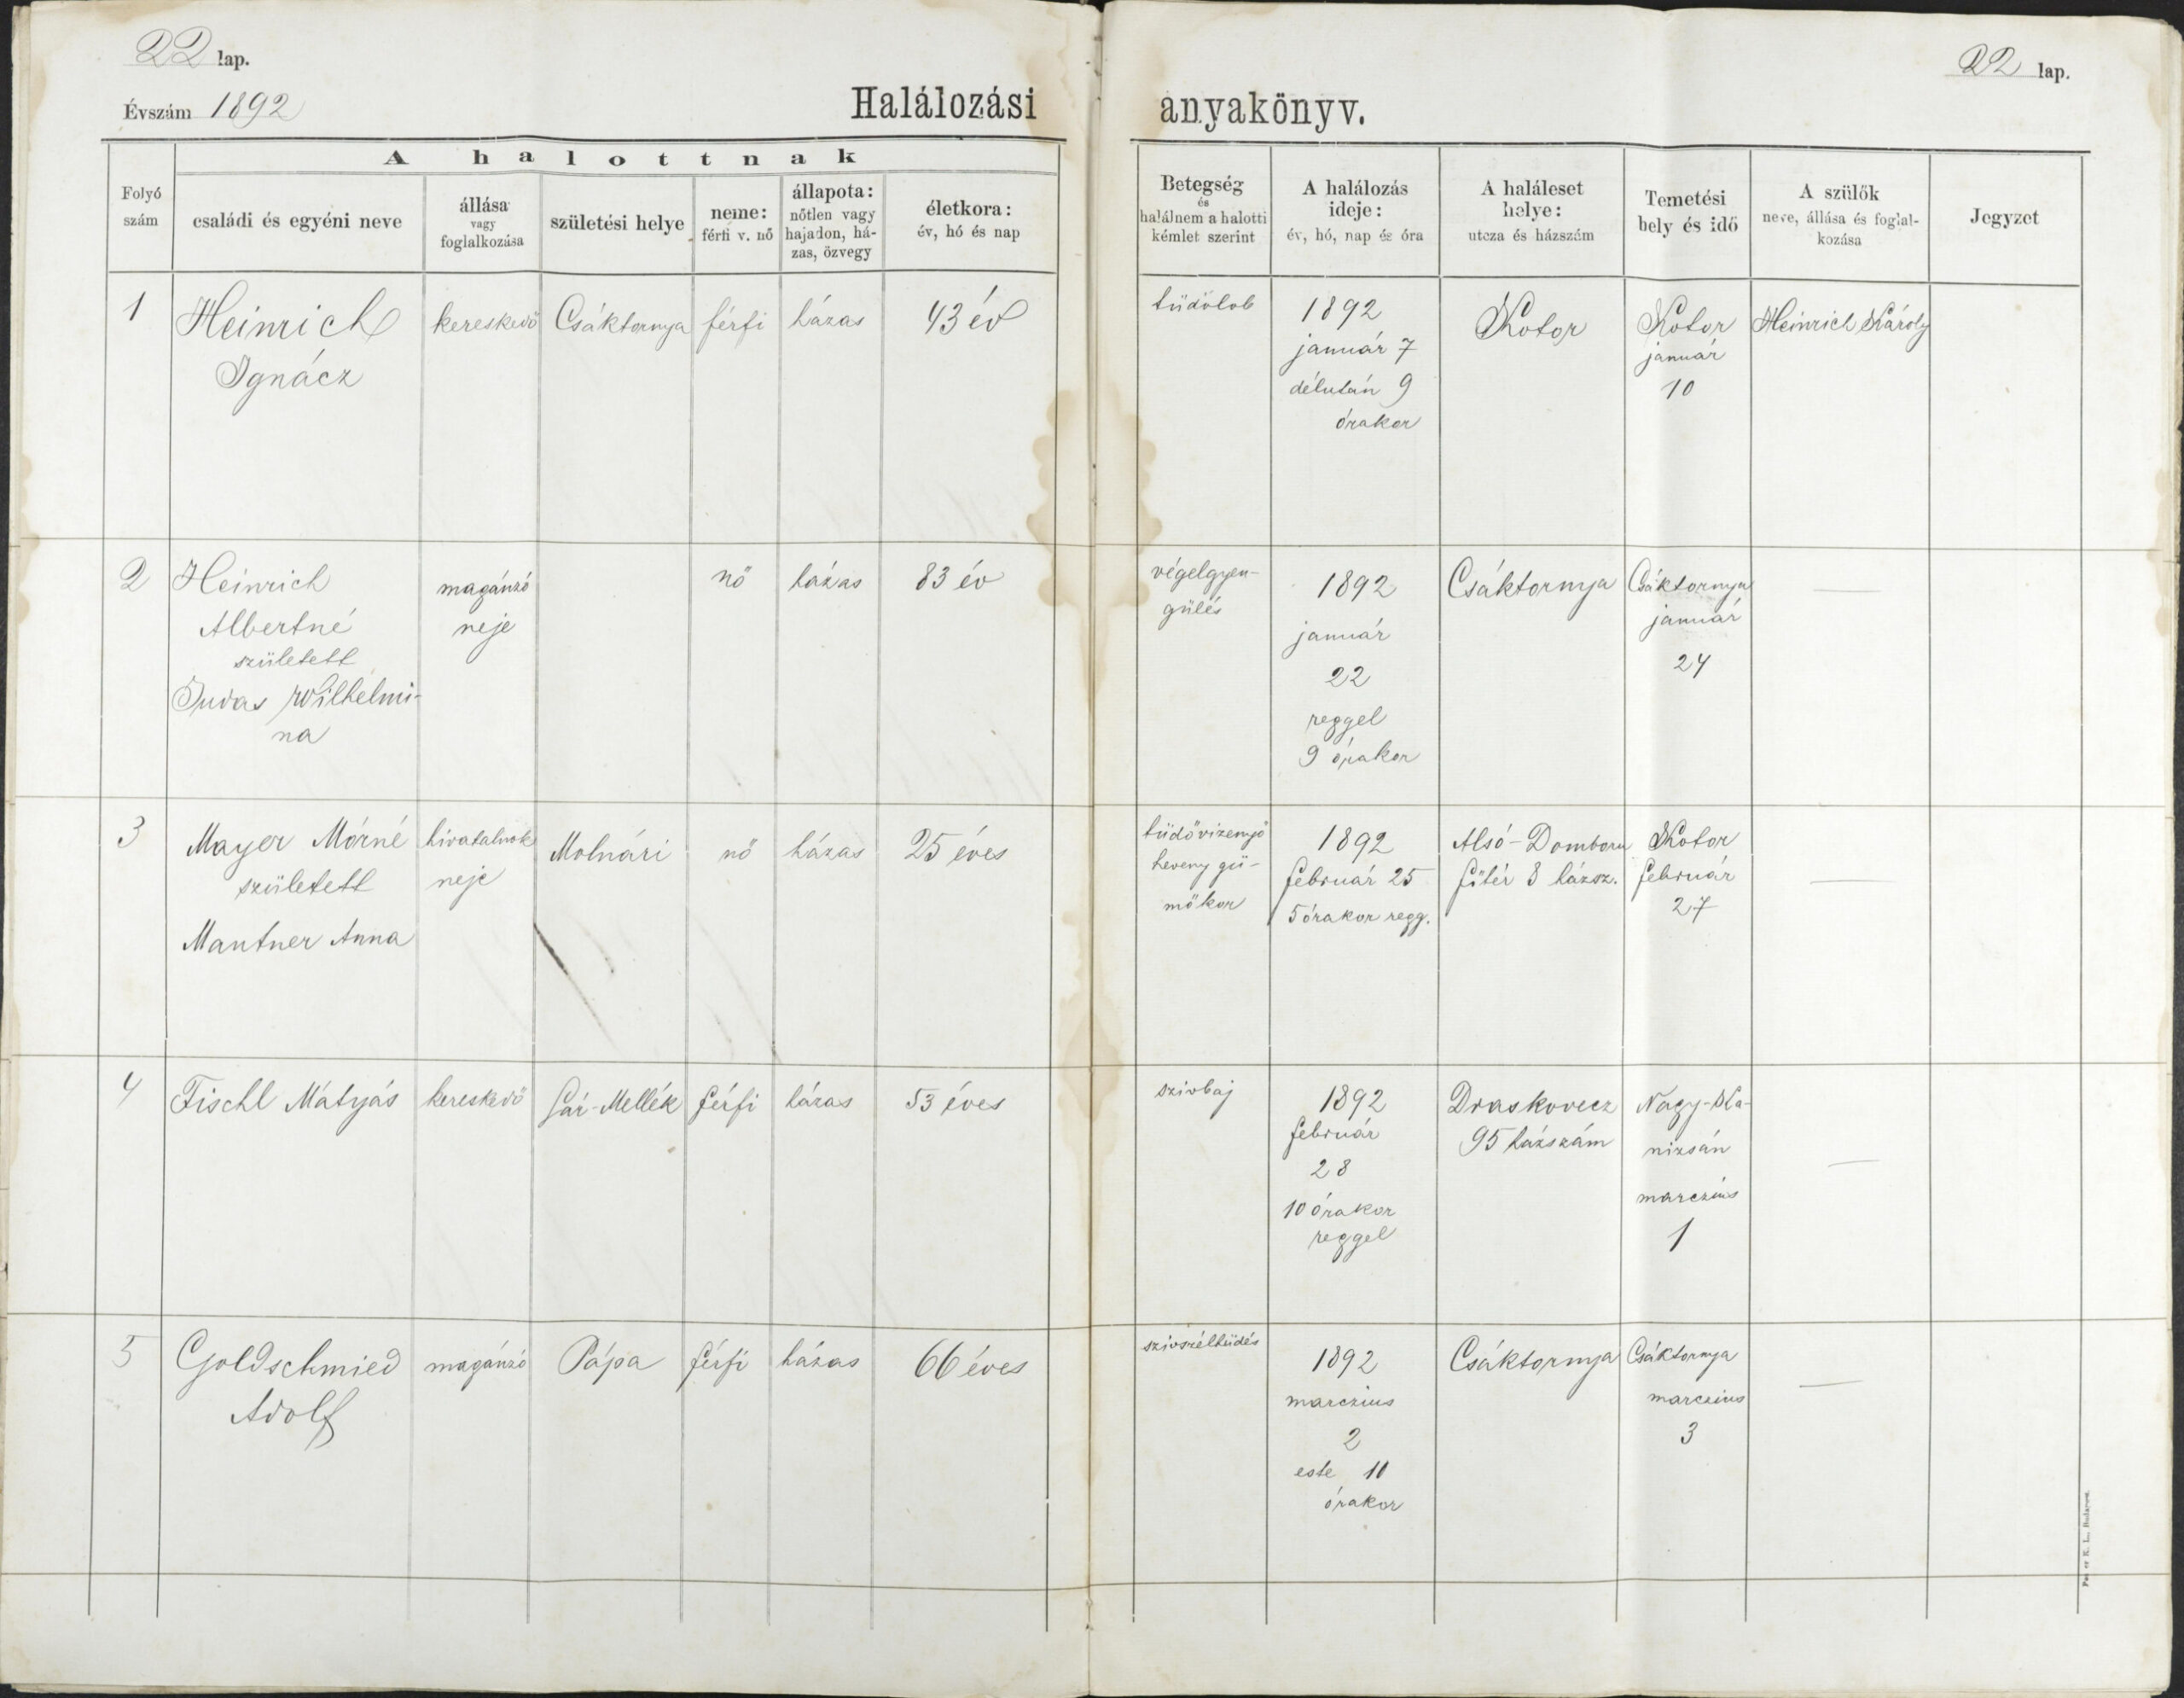 22 lap.
22 lap.
Évszám 1892
Halálozási anyakönyv.
A halottnak
Folyó
szám
családi és egyéni neve
állása
vagy
foglalkozása
születési helye
neme:
férfi v. nő
állapota:
nőtlen vagy
hajadon, há-
zas, özvegy
életkora:
év, hó és nap
Betegség
és
halálnem a halotti
kémlet szerint
A halálozás
ideje:
év, hó, nap és óra
A haláleset
helye:
utcza és házszám
Temetési
hely és idő
A szülők
neve, állása és foglal-
kozása
Jegyzet
1
Heinrich
Ignácz
kereskedő
Csáktornya
férfi
házas
43 év
tüdőlob
1892
január 7
délután 9
órakor
Kotor
Kotor
január
10
Heinrich Károly
2
Heinrich
Albertné
született
Judas Wilhelmi-
na
magánzó
neje
nő
házas
83 év
végelgyen-
gülés
1892
január
22
reggel
9 órakor
Csáktornya
Csáktornya
január
24
3
Mayer Mórné
született
Mautner Anna
hivatalnok
neje
Molnári
nő
házas
25 éves
tüdővizenyő
heveny gü-
mőkor
1892
február 25
5 órakor regg.
Alsó-Domboru
főtér 8 házsz.
Kotor
február
27
4
Fischl Mátyás
kereskedő
Sár-Mellék
férfi
házas
53 éves
szivbaj
1892
február
28
10 órakor
reggel
Draskovecz
95 házszám
Nagy-Ka-
nizsán
marczius
1
5
Goldschmied
Adolf
magánzó
Pápa
férfi
házas
66 éves
szivszélhüdés
1892
marczius
2
este 10
órakor
Csáktornya
Csáktornya
marczius
3